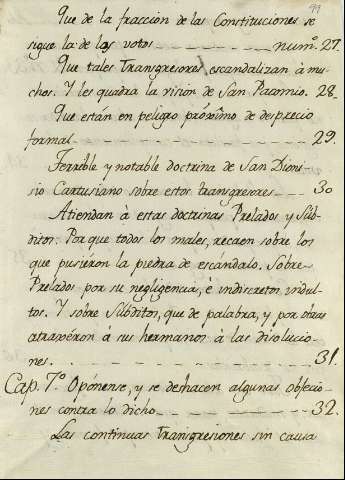 99
Que de la fraccion de las Constituciones se
sigue la de los votos num.º 27.
Que tales Transgresores escandalizan à mu-
chos. Y les quadra la vision de San Pacomio. 28.
Que están en peligro próximo de desprecio
formal 29.
Terrible y notable doctrina de San Dioni-
sio Cartusiano sobre estos transgresores 30
Atiendan à estas doctrinas Prelados y Súb-
ditos: Por que todos los males, recaen sobre los
que pusiéron la piedra de escándalo. Sobre
Prelados por su negligencia, è indiscretos indul-
tos. Y sobre Súbditos, que de palabra, y por obras
atraxéron à sus hermanos à las disolucio-
nes 31.
Cap. 7.º Opónense, y se deshacen algunas objecio-
nes contra lo dicho 32.
Las continuas Transgresiones sin causa